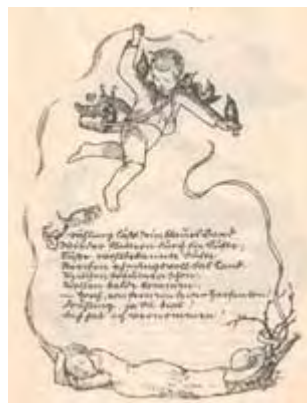 Frühling läßt sein blaues Band
Wieder flattern durch die Lüfte;
Süße, wohlbekannte Düfte
Streifen ahnungsvoll das Land.
Veilchen träumen schon,
Wollen balde kommen.
— Horch, von fern ein leiser Harfenton!
Frühling, ja du bist's!
Dich hab' ich vernommen!